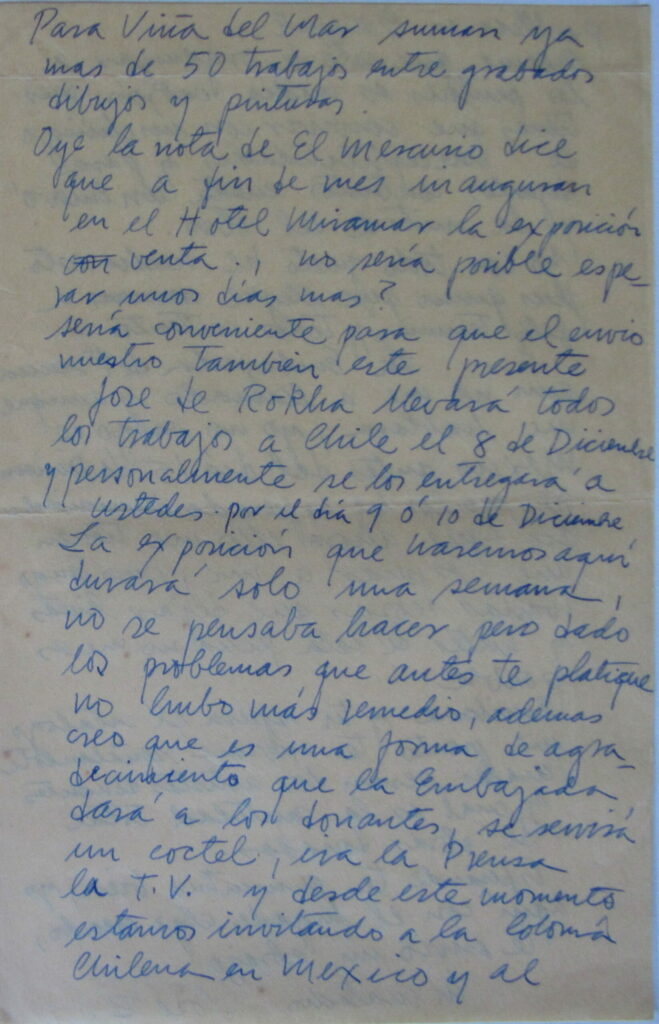 Para Viña del Mar suman ya
mas de 50 trabajos entre grabados
dibujos y pinturas.
Oye la nota de El Mercurio dice
que a fin de mes inauguran
en el Hotel Miramar la exposición
con venta., no sería posible espe-
rar unos días mas?
sería conveniente para que el envio
nuestro también este presente
Jose de Rokha llevará todos
los trabajos a Chile el 8 de Diciembre
y personalmente se los entregará a
ustedes por el día 9 ó 10 de Diciembre
La exposición que haremos aquí
durará solo una semana,
no se pensaba hacer pero dado
los problemas que antes te platique
no hubo más remedio, ademas
creo que es una forma de agra-
decimiento que la Embajada
dará a los donantes, se servirá
un coctel, irá la Prensa
la T.V. y desde este momento
estamos invitando a la Colonia
Chilena en Mexico y al